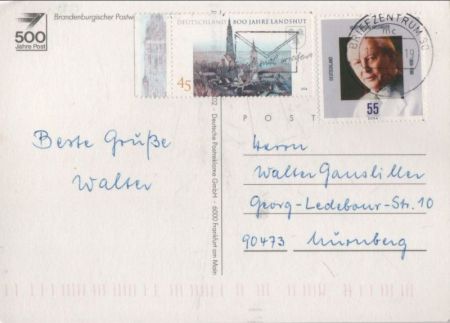 500
Jahre Post
Brandenburgischer
DEUTSCHLAND 800 JAHRE LANDSHUT
45
DEUTSCHLAND
55
BRIEFZENTRUM
POST
Beste Grüße
Walter
Herrn
Walter Gansliller
Georg-Ledebour-Str. 10
90473 Nürnberg
Deutsche Postreklame GmbH - 6000 Frankfurt am Main